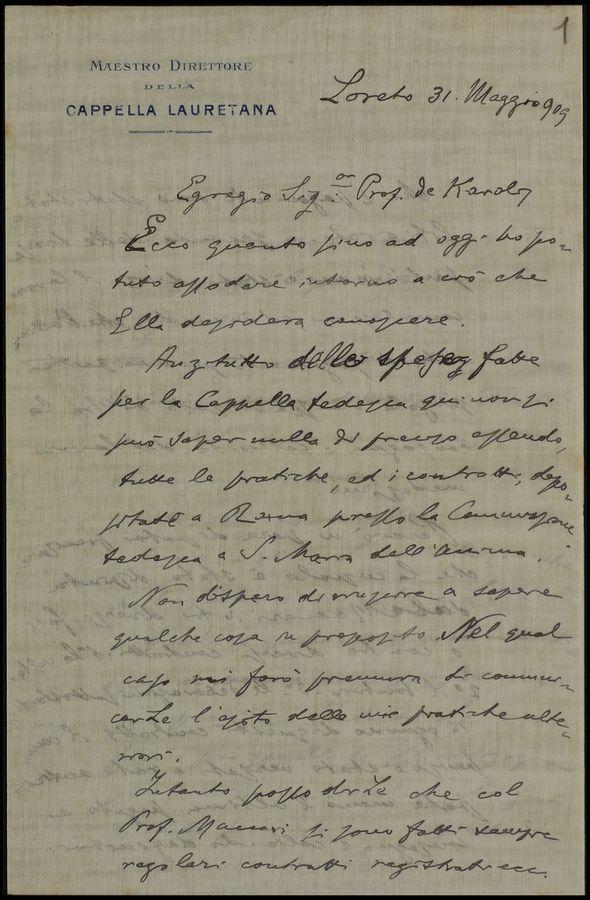 1
MAESTRO DIRETTORE
DELLA
CAPPELLA LAURETANA
Loreto 31. Maggio 909
Egregio Sig.or Prof. de Karoly
Ecco quanto sino ad oggi ho po-
tuto assodare intorno a ciò che
Ella desidera conoscere.
Anzitutto delle spese fatte
per la Cappella tedesca qui non si
può saper nulla di preciso essendo,
tutte le pratiche, ed i contratti, depo-
sitate a Roma presso la Commissione
tedesca a S. Maria dell'Anima.
Non dispero di riuscire a sapere
qualche cosa in proposito. Nel qual
caso mi farò premura di comuni-
carLe l'esito delle mie pratiche ulte-
riori.
Intanto posso dirLe che col
Prof. Maccari si sono fatti sempre
regolari contratti registrati ecc.